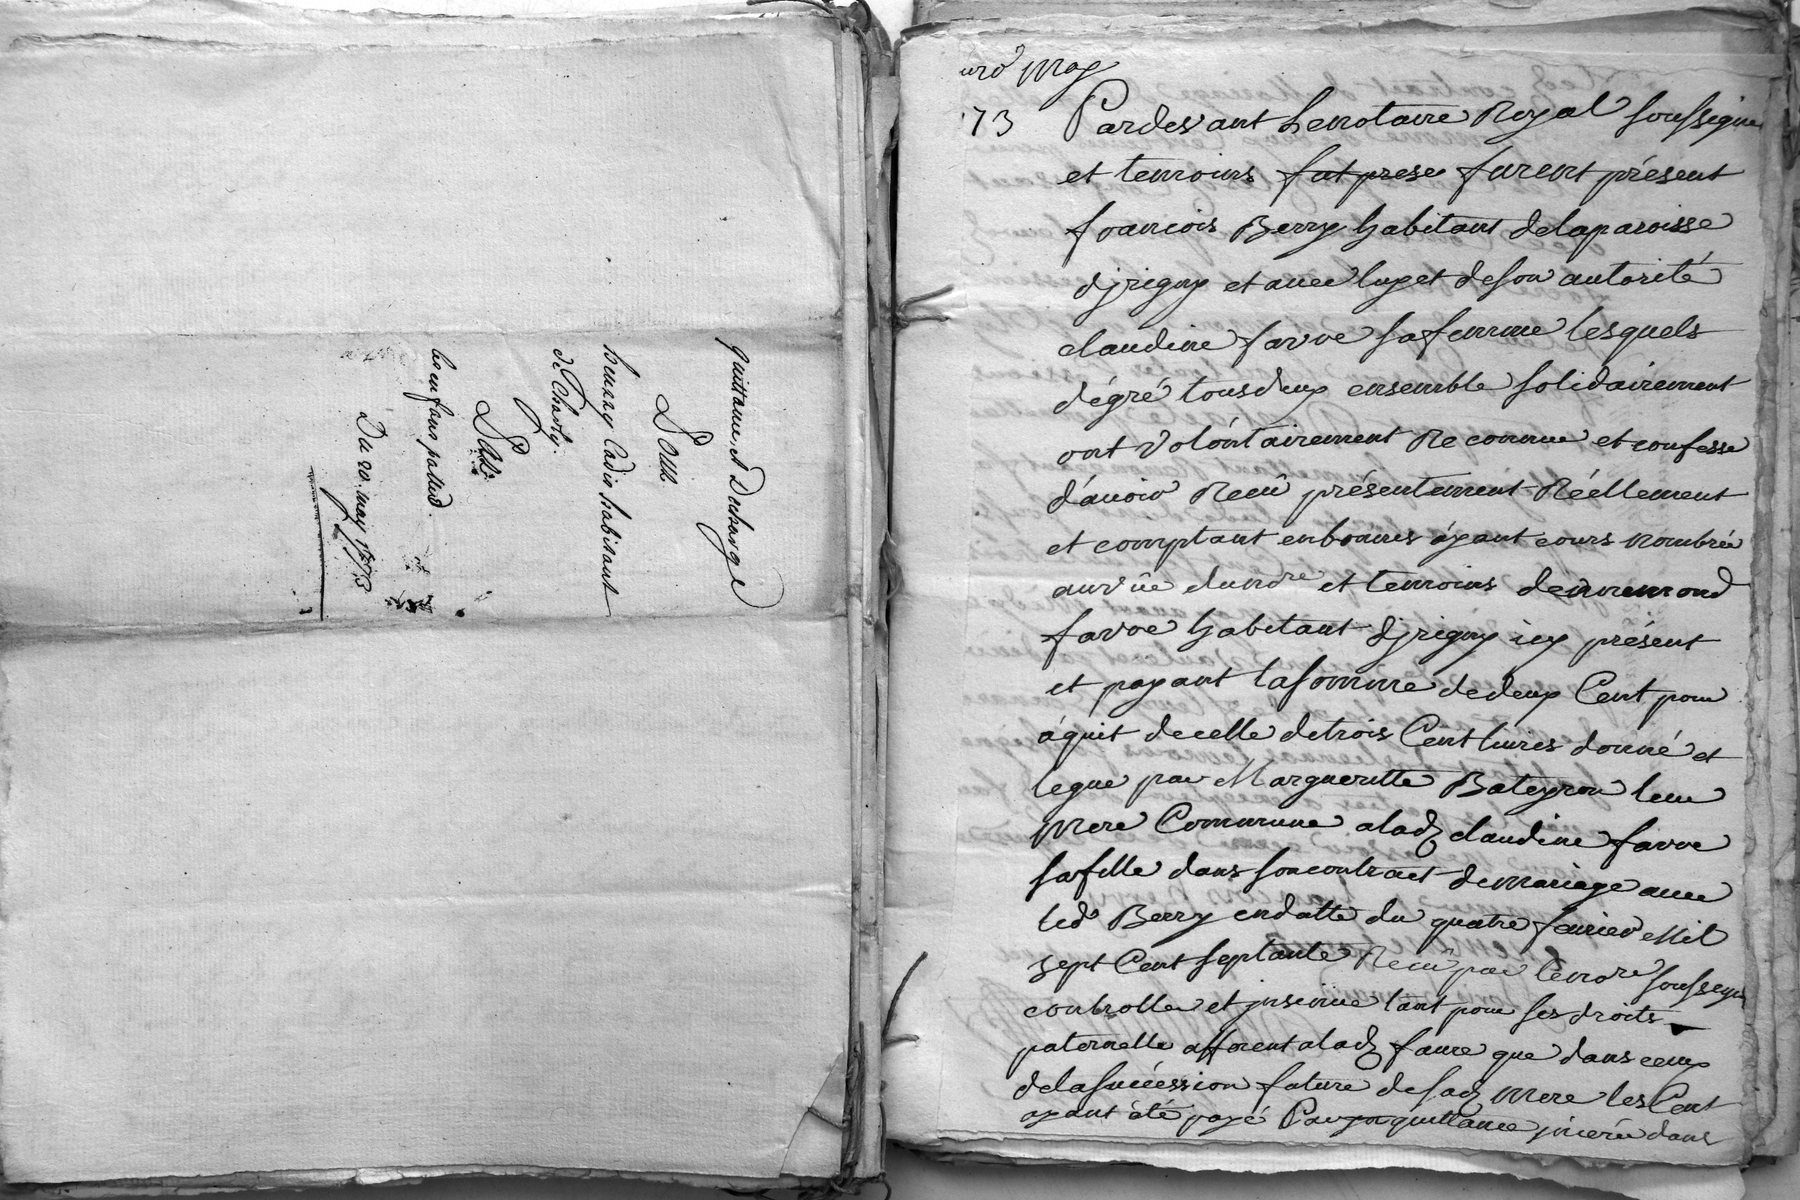 quittance et Décharge
Pour
benney Cadis habitant
de Charly.
Par
les enfans
Du 20. may 1773
may
73
Pardevant Lenotaire Royal soussigné
et temoins fut prese furent présent
francois Berry habitant delaparoisse
djrigny et avec luy et deson autorité
claudine favre safemme lesquels
dégré tousdeux ensemble solidairement
ont volóntairement Reconnue et confesse
d'avoir Recû présentement Réellement
et comptant enbonnes áyant cours nombrée
auvûe dunore et temoins
favre habitant djrigny icy présent
et payant lasomme dedeux Cent pour
áquit decelle detrois Cent livres donné et
legue par Margueritte Bateyron leur
mere Commune alad claudine favre
safille dans soncontract demariage avec
led Berry endatte du quatre fevrier Mil
sept Cent septante Recû par lenore soussigné
controlle et jnsinue tant pour ses droits
paternelle afferent alad favre que dans ceux
delasuccéssion future desad mere les Cent
ayant été payé Par quittance jnserée dans